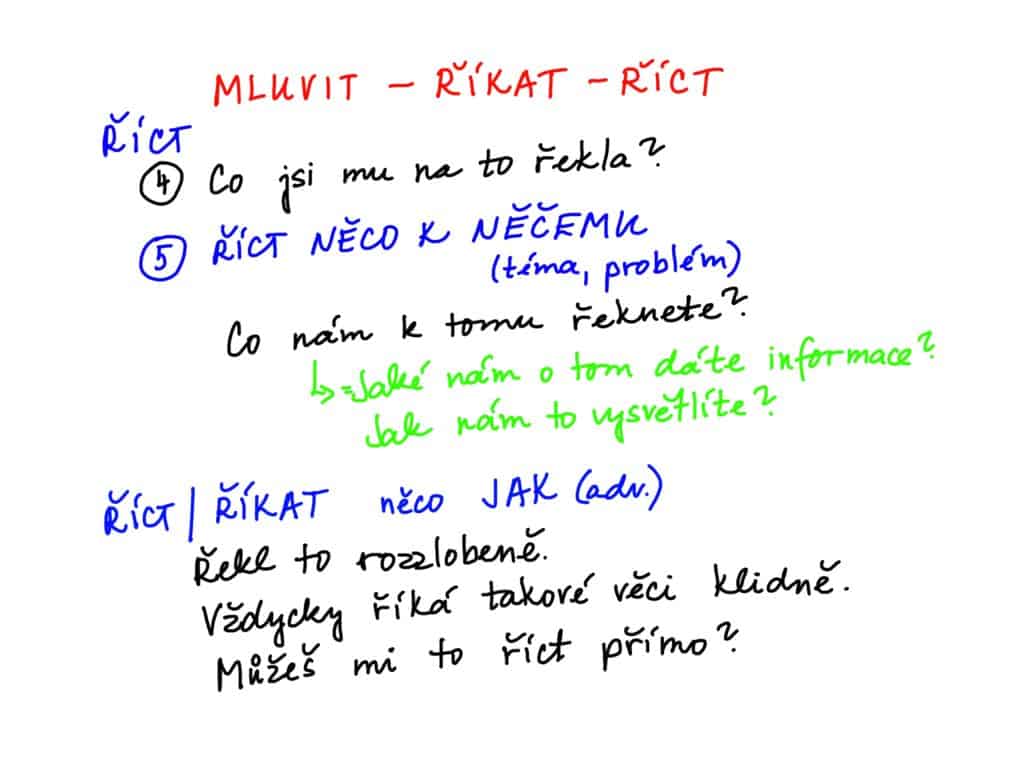 MLUVIT – ŘÍKAT – ŘÍCT
ŘÍCT
④ Co jsi mu na to řekla?
⑤ ŘÍCT NĚCO K NĚČEMU
(téma, problém)
Co nám k tomu řeknete?
↳ = Jaké nám o tom dáte informace?
Jak nám to vysvětlíte?
ŘÍCT | ŘÍKAT něco JAK (adv.)
Řekl to rozzlobeně.
Vždycky říká takové věci klidně.
Můžeš mi to říct přímo?